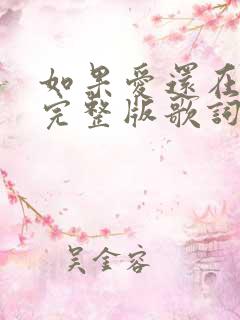 如果愛還在
完整版歌詞
吳金容